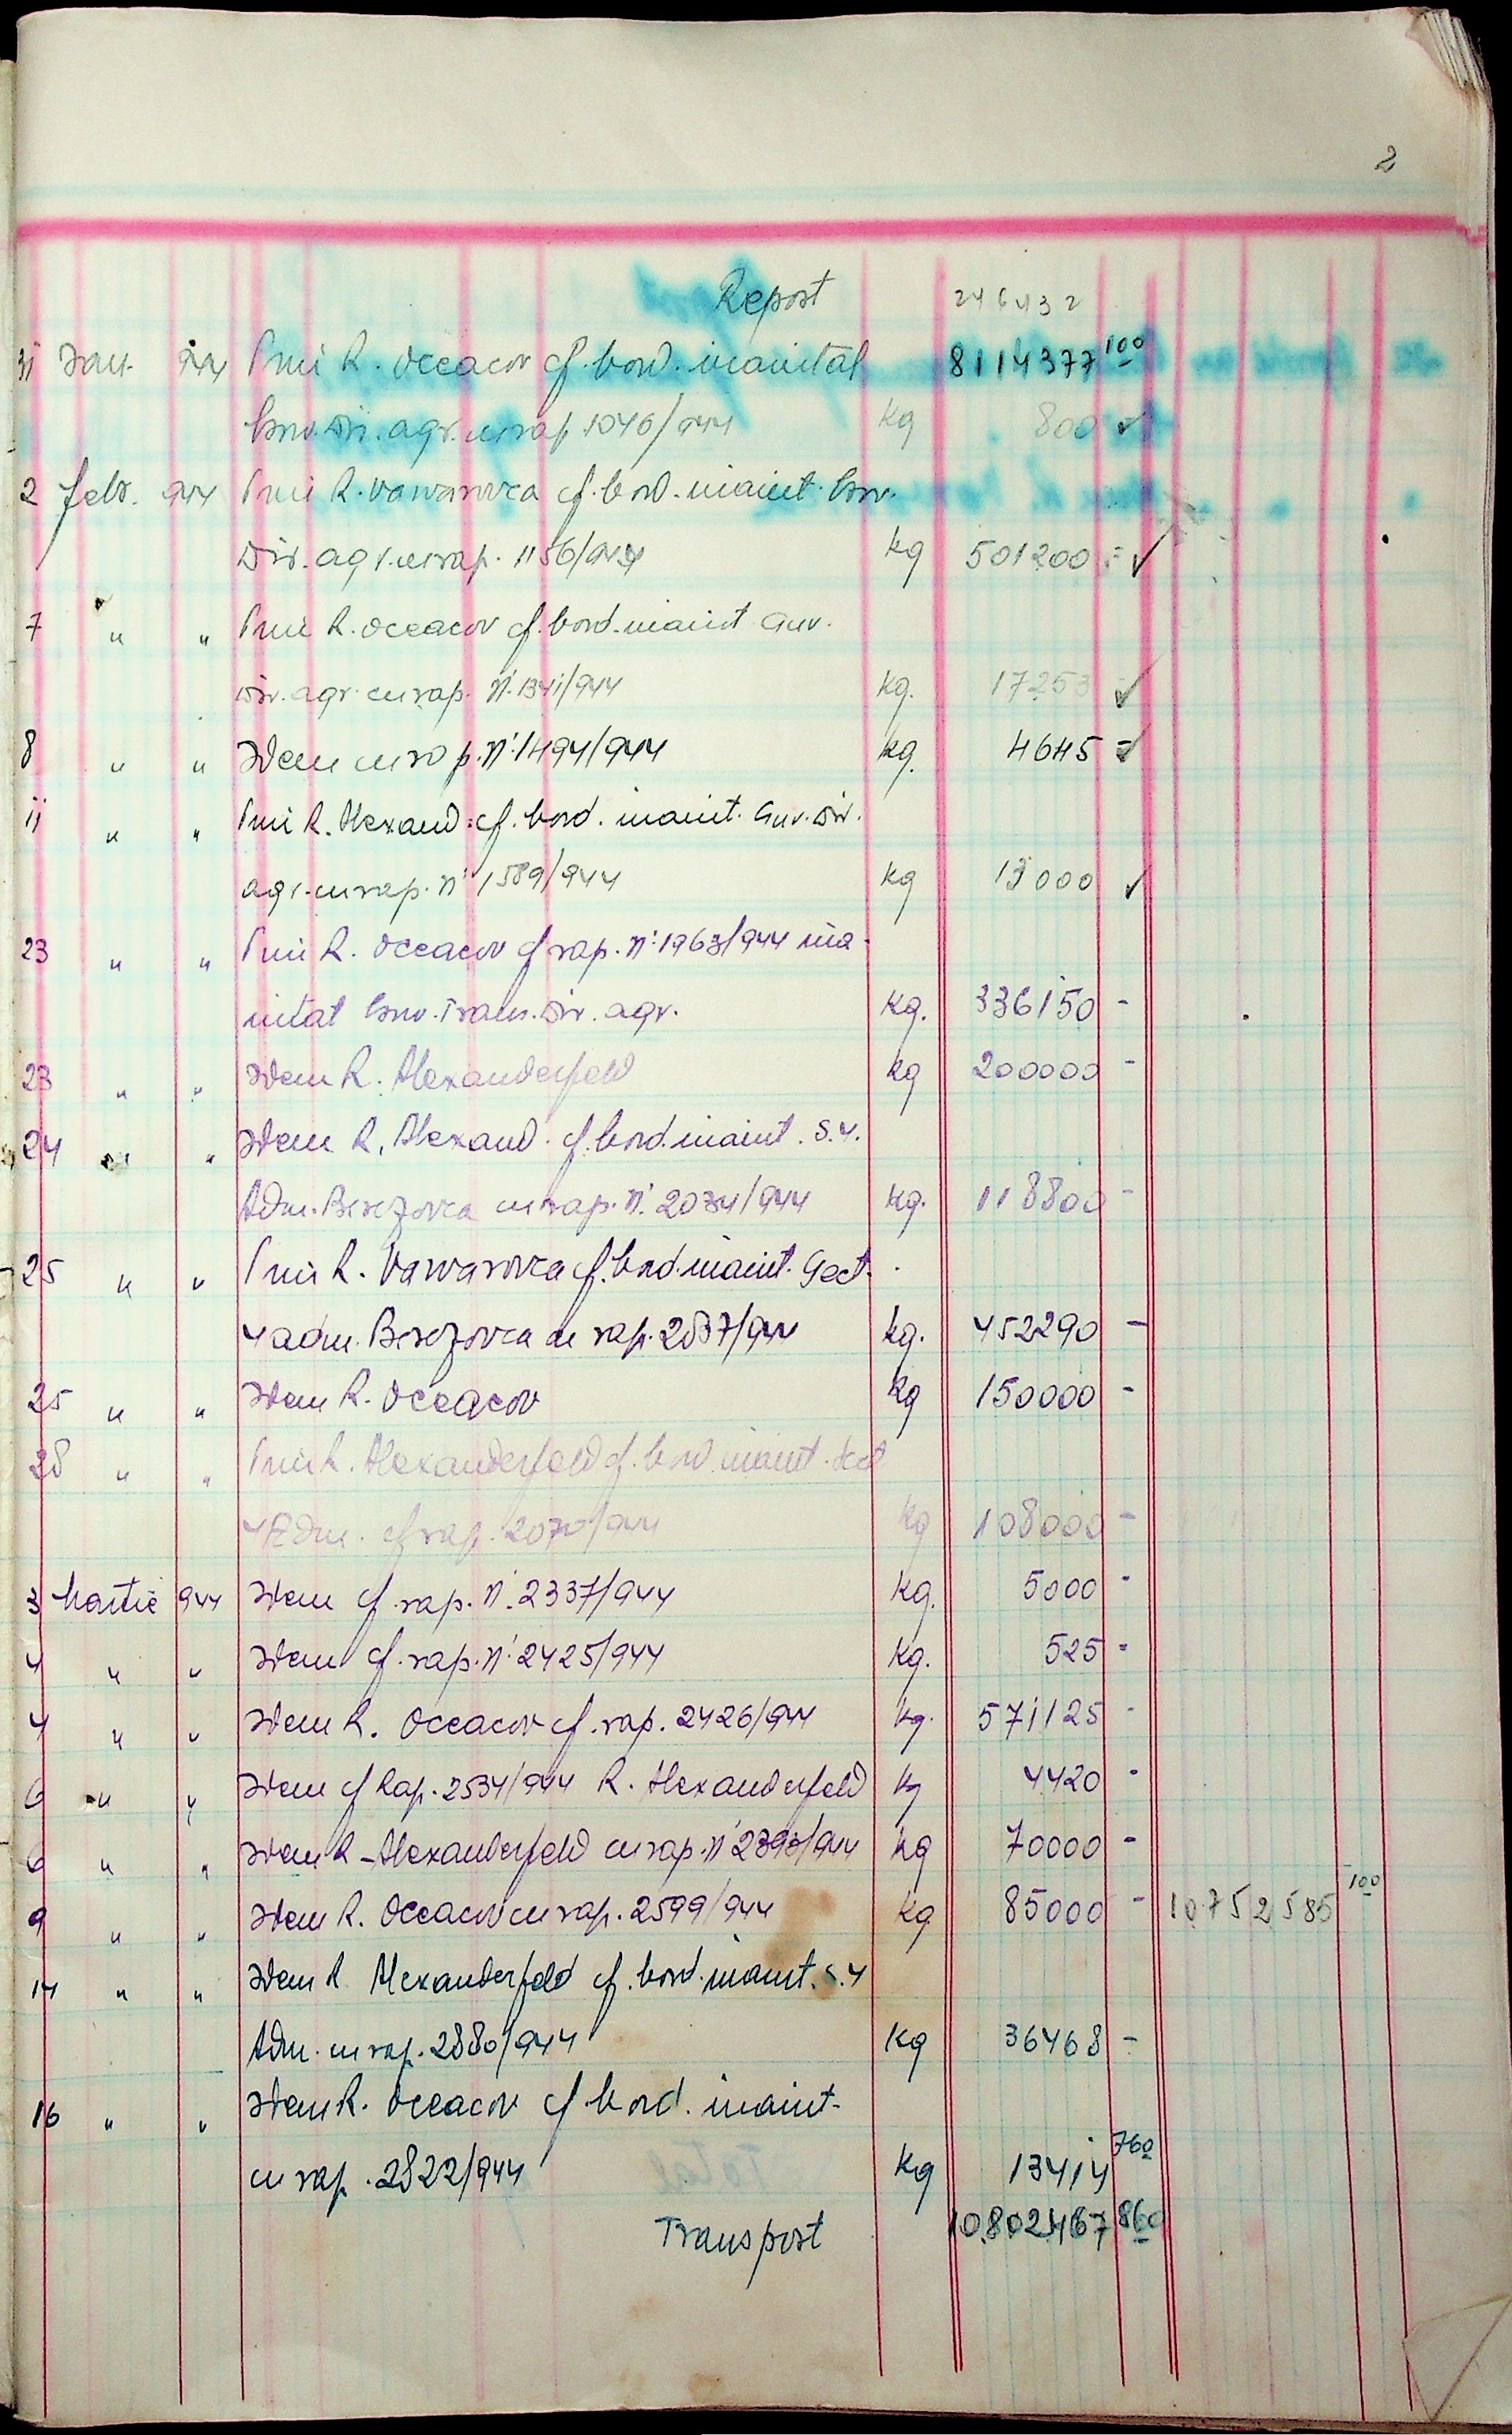 2
Report 246432
31 Ian. 944 Prin R. Oceacov cf. bord. inaintat 8114377 100
Guv. Dir. agr. cu rap. 1046/944 kg 800 -
2 febr. 944 Prin R. Varvarovca cf. bord. inaint. Guv.
Dir. agr. cu rap. 1156/944 kg 501200 -
7 " " Prin R. Oceacov cf. bord. inaint Guv.
Dir. agr. cu rap. N: 1341/944 kg. 17253 -
8 " " Idem cu rap. N: 1494/944 kg. 4645 -
11 " " Prin R. Alexand. cf. bord. inaint. Guv. Dir.
agr. cu rap. N: 1589/944 kg 13000
23 " " Prin R. Oceacov cf rap. N: 1963/944 ina-
intat Guv. Trans. Dir. agr. kg. 336150 -
23 " " Idem R. Alexanderfeld kg 200000 -
24 " " Idem R. Alexand. cf. bord. inaint. S. 4.
Adm. Berezovca cu rap. N: 2034/944 kg. 118800 -
25 " " Prin R. Varvarovca cf. bord. inaint. Sect.
4 adm. Berezovca cu rap. 2037/944 kg. 452290 -
25 " " Idem R. Oceacov kg 150000 -
28 " " Prin R. Alexanderfeld cf. bord. inaint. Sect
4 Adm. cf rap. 2070/944 kg 108000 -
3 Martie 944 Idem cf. rap. N: 2337/944 kg. 5000 -
4 " " Idem cf. rap. N: 2425/944 kg. 525 -
4 " " Idem R. Oceacov cf. rap. 2426/944 kg. 571125 -
6 " " Idem cf Rap. 2534/944 R. Alexanderfeld kg 4420 -
6 " " Idem R-Alexanderfeld cu rap. N: 2393/944 kg 70000 -
9 " " Idem R. Oceacov cu rap. 2599/944 kg 85000 - 10752585 100
14 " " Idem R Alexanderfeld cf. bord. inaint. S. 4
Adm. cu rap. 2880/944 kg 36468 -
16 " " Idem R. Oceacov cf bord. inaint-
cu rap. 2822/944 kg 13414 760
Transport 10.802467 860